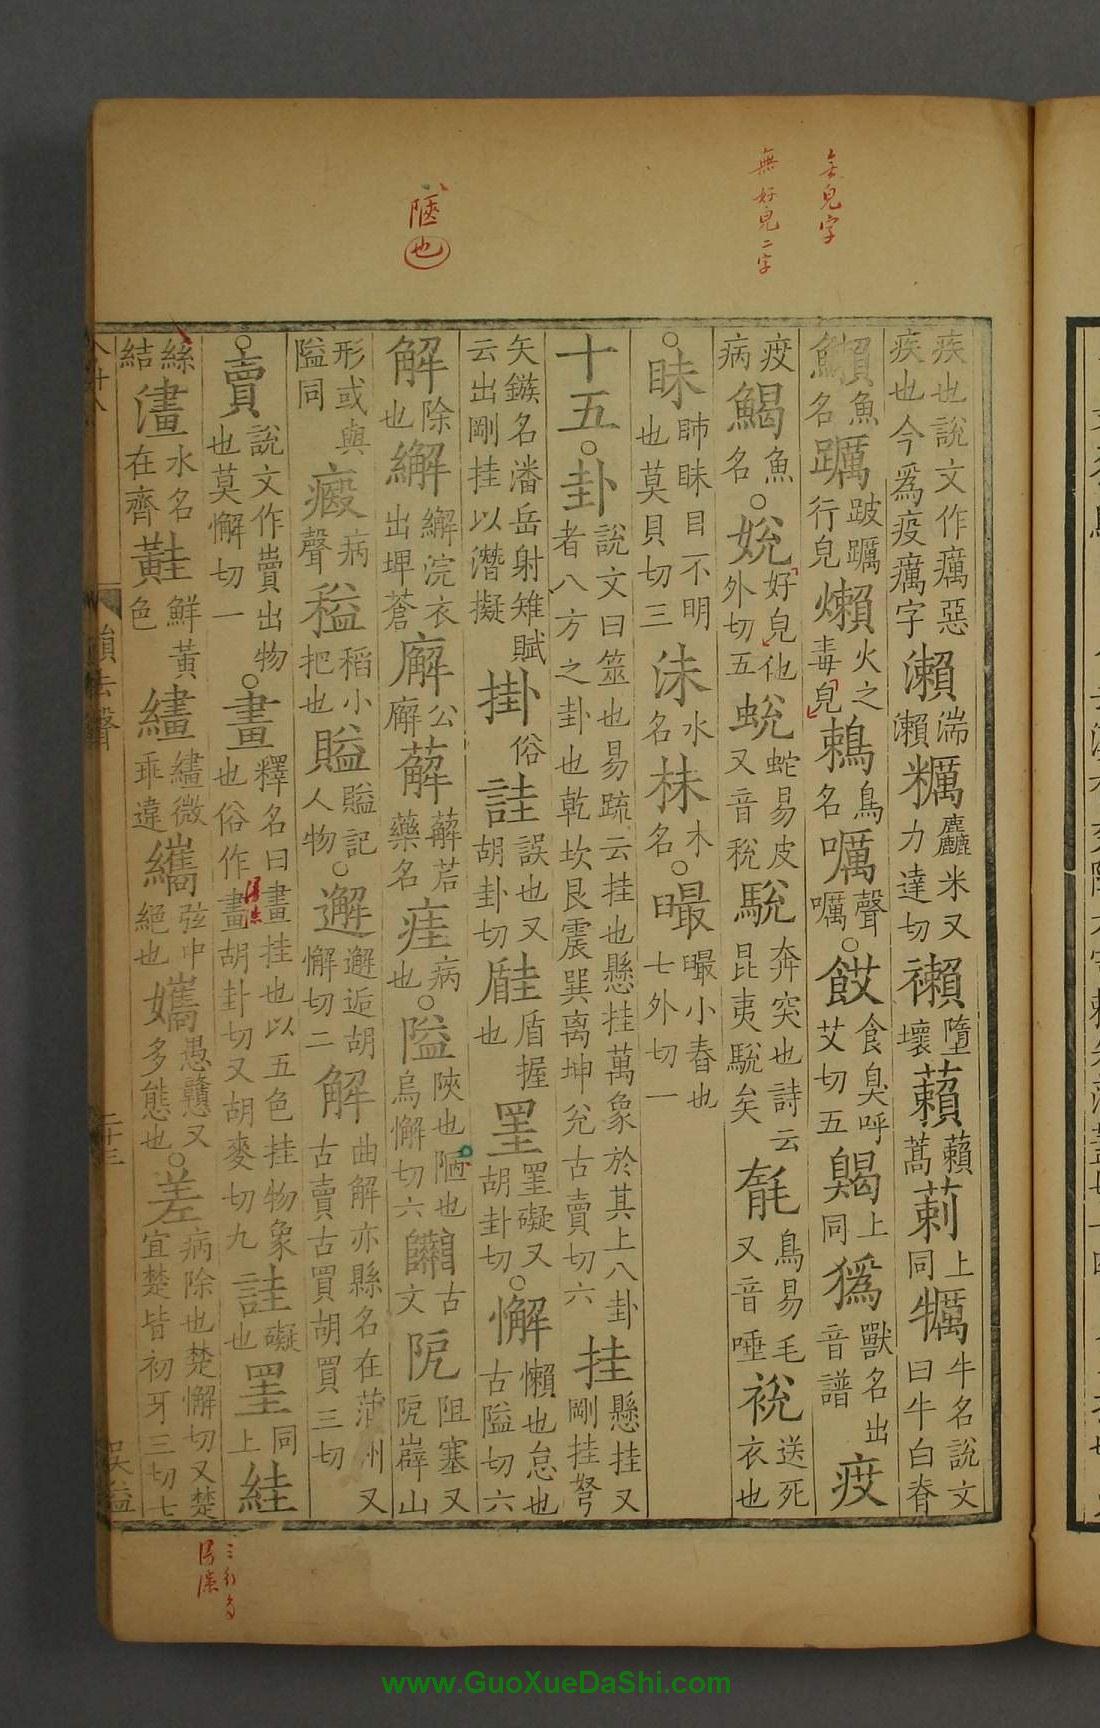 無皃字
無好皃二字
陋也
疾也說文作癘惡疾也今爲疫癘字瀨湍瀨糲麤米又力達切襰墮壞藾藾蒿莿上同犡牛名說文曰牛白脊
鱲魚名躪跛躪行皃爤火之毒皃鵣鳥名囑聲囑○餀食臭呼艾切五䬵上同獩獸名出音譜疫
疫病鱲魚名○娧好皃他外切五蛻蛇易皮又音稅駾奔突也詩云昆夷駾矣毤鳥易毛又音唾祱送死衣也
○眛䀛眛目不明也莫貝切三沬水名㭑木名○㬠㬠小舂也七外切一
十五○卦說文曰筮也易疏云挂也懸挂萬象於其上八卦者八方之卦也乾坎艮震巽离坤兌古賣切六挂懸挂又剛挂弩
矢鏃名潘岳射雉賦云出剛挂以潛擬掛俗詿誤也又胡卦切䀺盾握也罣罣礙又胡卦切○懈懶也怠也古隘切六
解除也繲繲浣衣出埤蒼廨公廨薢薢若藥名㾏病也○隘陝也陋也烏懈切六𨽿古文阸阻塞又阸崿山
形或與隘同㿄病聲䅬稻小把也賹賹記人物○邂邂逅胡懈切二解曲解亦縣名在蒲州又古賣古買胡買三切
○賣說文作賣出物也莫懈切一○畫釋名曰畫挂也以五色挂物象也俗作畫胡卦切又胡麥切九詿礙也罣上同絓
絲結澅水名在齊黊鮮黃色繣繣微乖違纗弦中絕也孈愚戇又多態也○差病除也楚懈切又楚宜楚皆初牙三切七
韻去聲
二十三
吳益
www.GuoXueDaShi.com